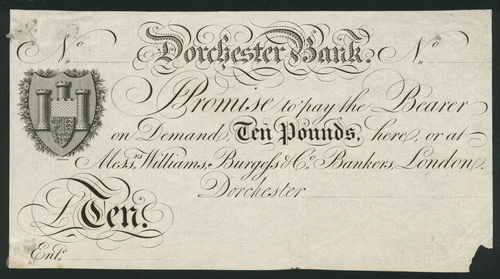 No. Dorchester Bank. No.
I Promise to pay the Bearer
on Demand Ten Pounds, here, or at
Messrs. Williams, Burgess & Co. Bankers, London.
Dorchester
£ Ten.
Entd.